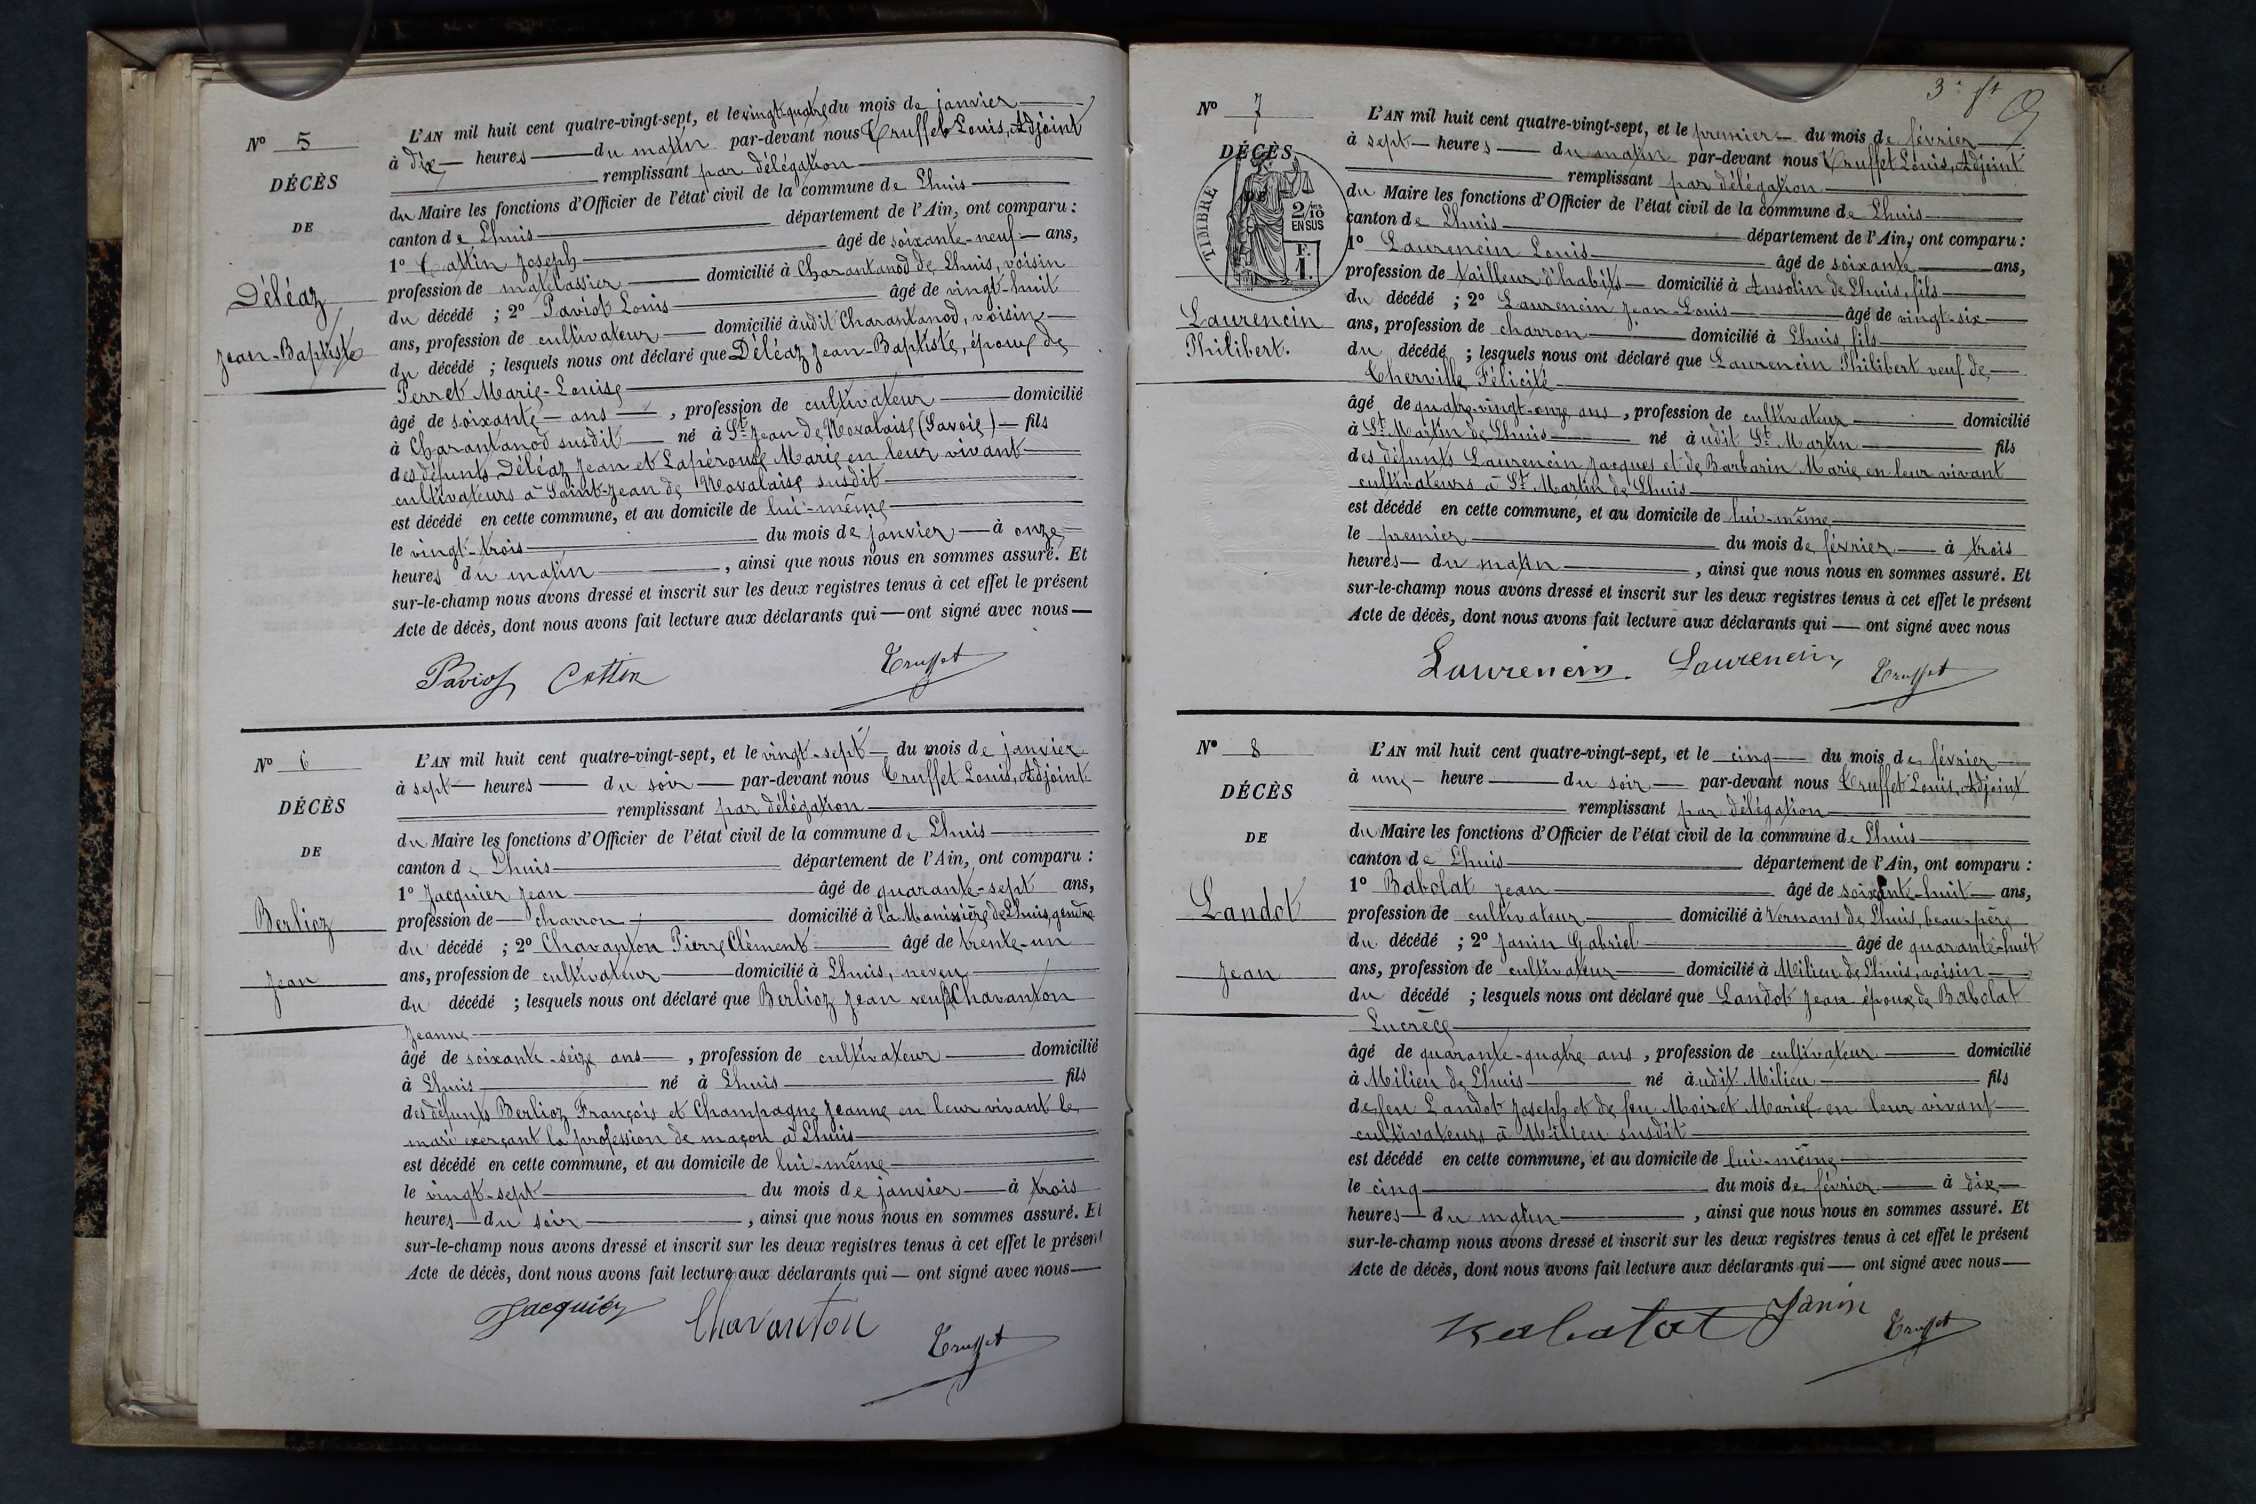 N° 5
DÉCÈS
DE
Déléaz
Jean-Baptiste
L'AN mil huit cent quatre-vingt-sept, et le vingt-quatre du mois de janvier
à dix heures du matin par-devant nous Truffet Louis, Adjoint
remplissant par délégation
du Maire les fonctions d'Officier de l'état civil de la commune de Lhuis
canton de Lhuis département de l'Ain, ont comparu :
1° Cottin Joseph âgé de soixante-neuf ans,
profession de matelassier domicilié à Charantanod de Lhuis, voisin
du décédé ; 2° Paviot Louis âgé de vingt-huit
ans, profession de cultivateur domicilié audit Charantanod, voisin
du décédé ; lesquels nous ont déclaré que Déléaz Jean-Baptiste, époux de
Perret Marie-Louise
âgé de soixante ans , profession de cultivateur domicilié
à Charantanod susdit né à St Jean de Novalaise (Savoie) fils
des défunts Déléaz Jean et Lapérouse Marie en leur vivant
cultivateurs à Saint-Jean de Novalaise susdit
est décédé en cette commune, et au domicile de lui-même
le vingt-trois du mois de janvier à onze
heures du matin , ainsi que nous nous en sommes assuré. Et
sur-le-champ nous avons dressé et inscrit sur les deux registres tenus à cet effet le présent
Acte de décès, dont nous avons fait lecture aux déclarants qui ont signé avec nous
Paviot Cottin Truffet
N° 6
DÉCÈS
DE
Berlioz
Jean
L'AN mil huit cent quatre-vingt-sept, et le vingt-sept du mois de janvier
à sept heures du soir par-devant nous Truffet Louis, Adjoint
remplissant par délégation
du Maire les fonctions d'Officier de l'état civil de la commune de Lhuis
canton de Lhuis département de l'Ain, ont comparu :
1° Jacquier Jean âgé de quarante-sept ans,
profession de charron domicilié à la Manissière de Lhuis, gendre
du décédé ; 2° Chavanton Pierre Clément âgé de trente-un
ans, profession de cultivateur domicilié à Lhuis, neveu
du décédé ; lesquels nous ont déclaré que Berlioz Jean veuf de Chavanton
Jeanne
âgé de soixante-seize ans , profession de cultivateur domicilié
à Lhuis né à Lhuis fils
des défunts Berlioz François et Champagne Jeanne en leur vivant le
mari exerçant la profession de maçon à Lhuis
est décédé en cette commune, et au domicile de lui-même
le vingt-sept du mois de janvier à trois
heures du soir , ainsi que nous nous en sommes assuré. Et
sur-le-champ nous avons dressé et inscrit sur les deux registres tenus à cet effet le présent
Acte de décès, dont nous avons fait lecture aux déclarants qui ont signé avec nous
Jacquier Chavanton Truffet
3e ft
N° 7
DÉCÈS
DE
TIMBRE
2/10 EN SUS
F. 1.
Laurencin
Philibert.
L'AN mil huit cent quatre-vingt-sept, et le premier du mois de février
à sept heures du matin par-devant nous Truffet Louis, Adjoint
remplissant par délégation
du Maire les fonctions d'Officier de l'état civil de la commune de Lhuis
canton de Lhuis département de l'Ain, ont comparu :
1° Laurencin Louis âgé de soixante ans,
profession de tailleur d'habits domicilié à Ansolin de Lhuis, fils
du décédé ; 2° Laurencin Jean-Louis âgé de vingt-six
ans, profession de charron domicilié à Lhuis, fils
du décédé ; lesquels nous ont déclaré que Laurencin Philibert veuf de
Cherville Félicité
âgé de quatre-vingt-onze ans , profession de cultivateur domicilié
à St Martin de Lhuis né audit St Martin fils
des défunts Laurencin Jacques et de Barbarin Marie en leur vivant
cultivateurs à St Martin de Lhuis
est décédé en cette commune, et au domicile de lui-même
le premier du mois de février à trois
heures du matin , ainsi que nous nous en sommes assuré. Et
sur-le-champ nous avons dressé et inscrit sur les deux registres tenus à cet effet le présent
Acte de décès, dont nous avons fait lecture aux déclarants qui ont signé avec nous
Laurencin Laurencin Truffet
N° 8
DÉCÈS
DE
Landot
Jean
L'AN mil huit cent quatre-vingt-sept, et le cinq du mois de février
à une heure du soir par-devant nous Truffet Louis, Adjoint
remplissant par délégation
du Maire les fonctions d'Officier de l'état civil de la commune de Lhuis
canton de Lhuis département de l'Ain, ont comparu :
1° Babolat Jean âgé de soixante-huit ans,
profession de cultivateur domicilié à Vernans de Lhuis, beau-père
du décédé ; 2° Janin Gabriel âgé de quarante-huit
ans, profession de cultivateur domicilié à Milieu de Lhuis, voisin
du décédé ; lesquels nous ont déclaré que Landot Jean époux de Babolat
Lucrèce
âgé de quarante-quatre ans , profession de cultivateur domicilié
à Milieu de Lhuis né audit Milieu fils
de feu Landot Joseph et de feu Moiret Marie en leur vivant
cultivateurs à Milieu susdit
est décédé en cette commune, et au domicile de lui-même
le cinq du mois de février à dix
heures du matin , ainsi que nous nous en sommes assuré. Et
sur-le-champ nous avons dressé et inscrit sur les deux registres tenus à cet effet le présent
Acte de décès, dont nous avons fait lecture aux déclarants qui ont signé avec nous
Babolat Janin Truffet